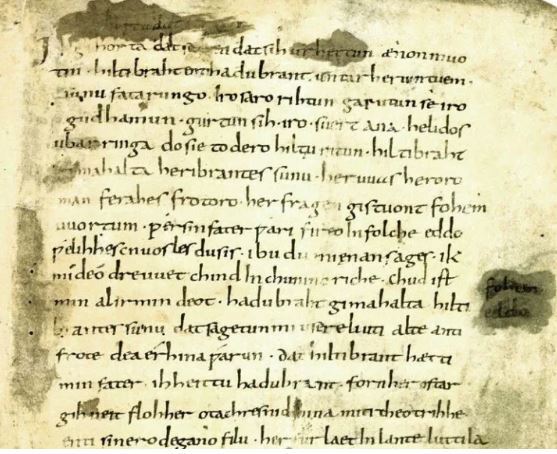 horta dat seggen dat sih urhettun ænon muo
tin · hiltibraht enti hadubrant · untar heriun tuem ·
sunu fatarungo · iro saro rihtun garutun se iro
gudhamun · gurtun sih · iro · suert ana · helidos
ubar ringa do sie to dero hiltu ritun · hiltibraht
gimahalta heribrantes sunu · her uuas heroro
man ferahes frotoro · her fragen gistuont fohem
uuortum · ƿer sin fater ƿari fireo In folche eddo
ƿelihhes cnuosles du sis · ibu du mi enan sages · ik
mi de odre uuet chind In chuninc riche · chud ist
min al irmin deot · hadubraht gimahalta hilti
brantes sunu · dat sagetun mi usere liuti alte anti
frote dea erhina ƿarun · dat hiltibrant hætti
min fater · ih heittu hadubrant · forn her ostar
gihueit floh her otachres nid hina miti theotrihhe
enti sinero degano filu · her fur laet In lante luttila
fohem
eddo